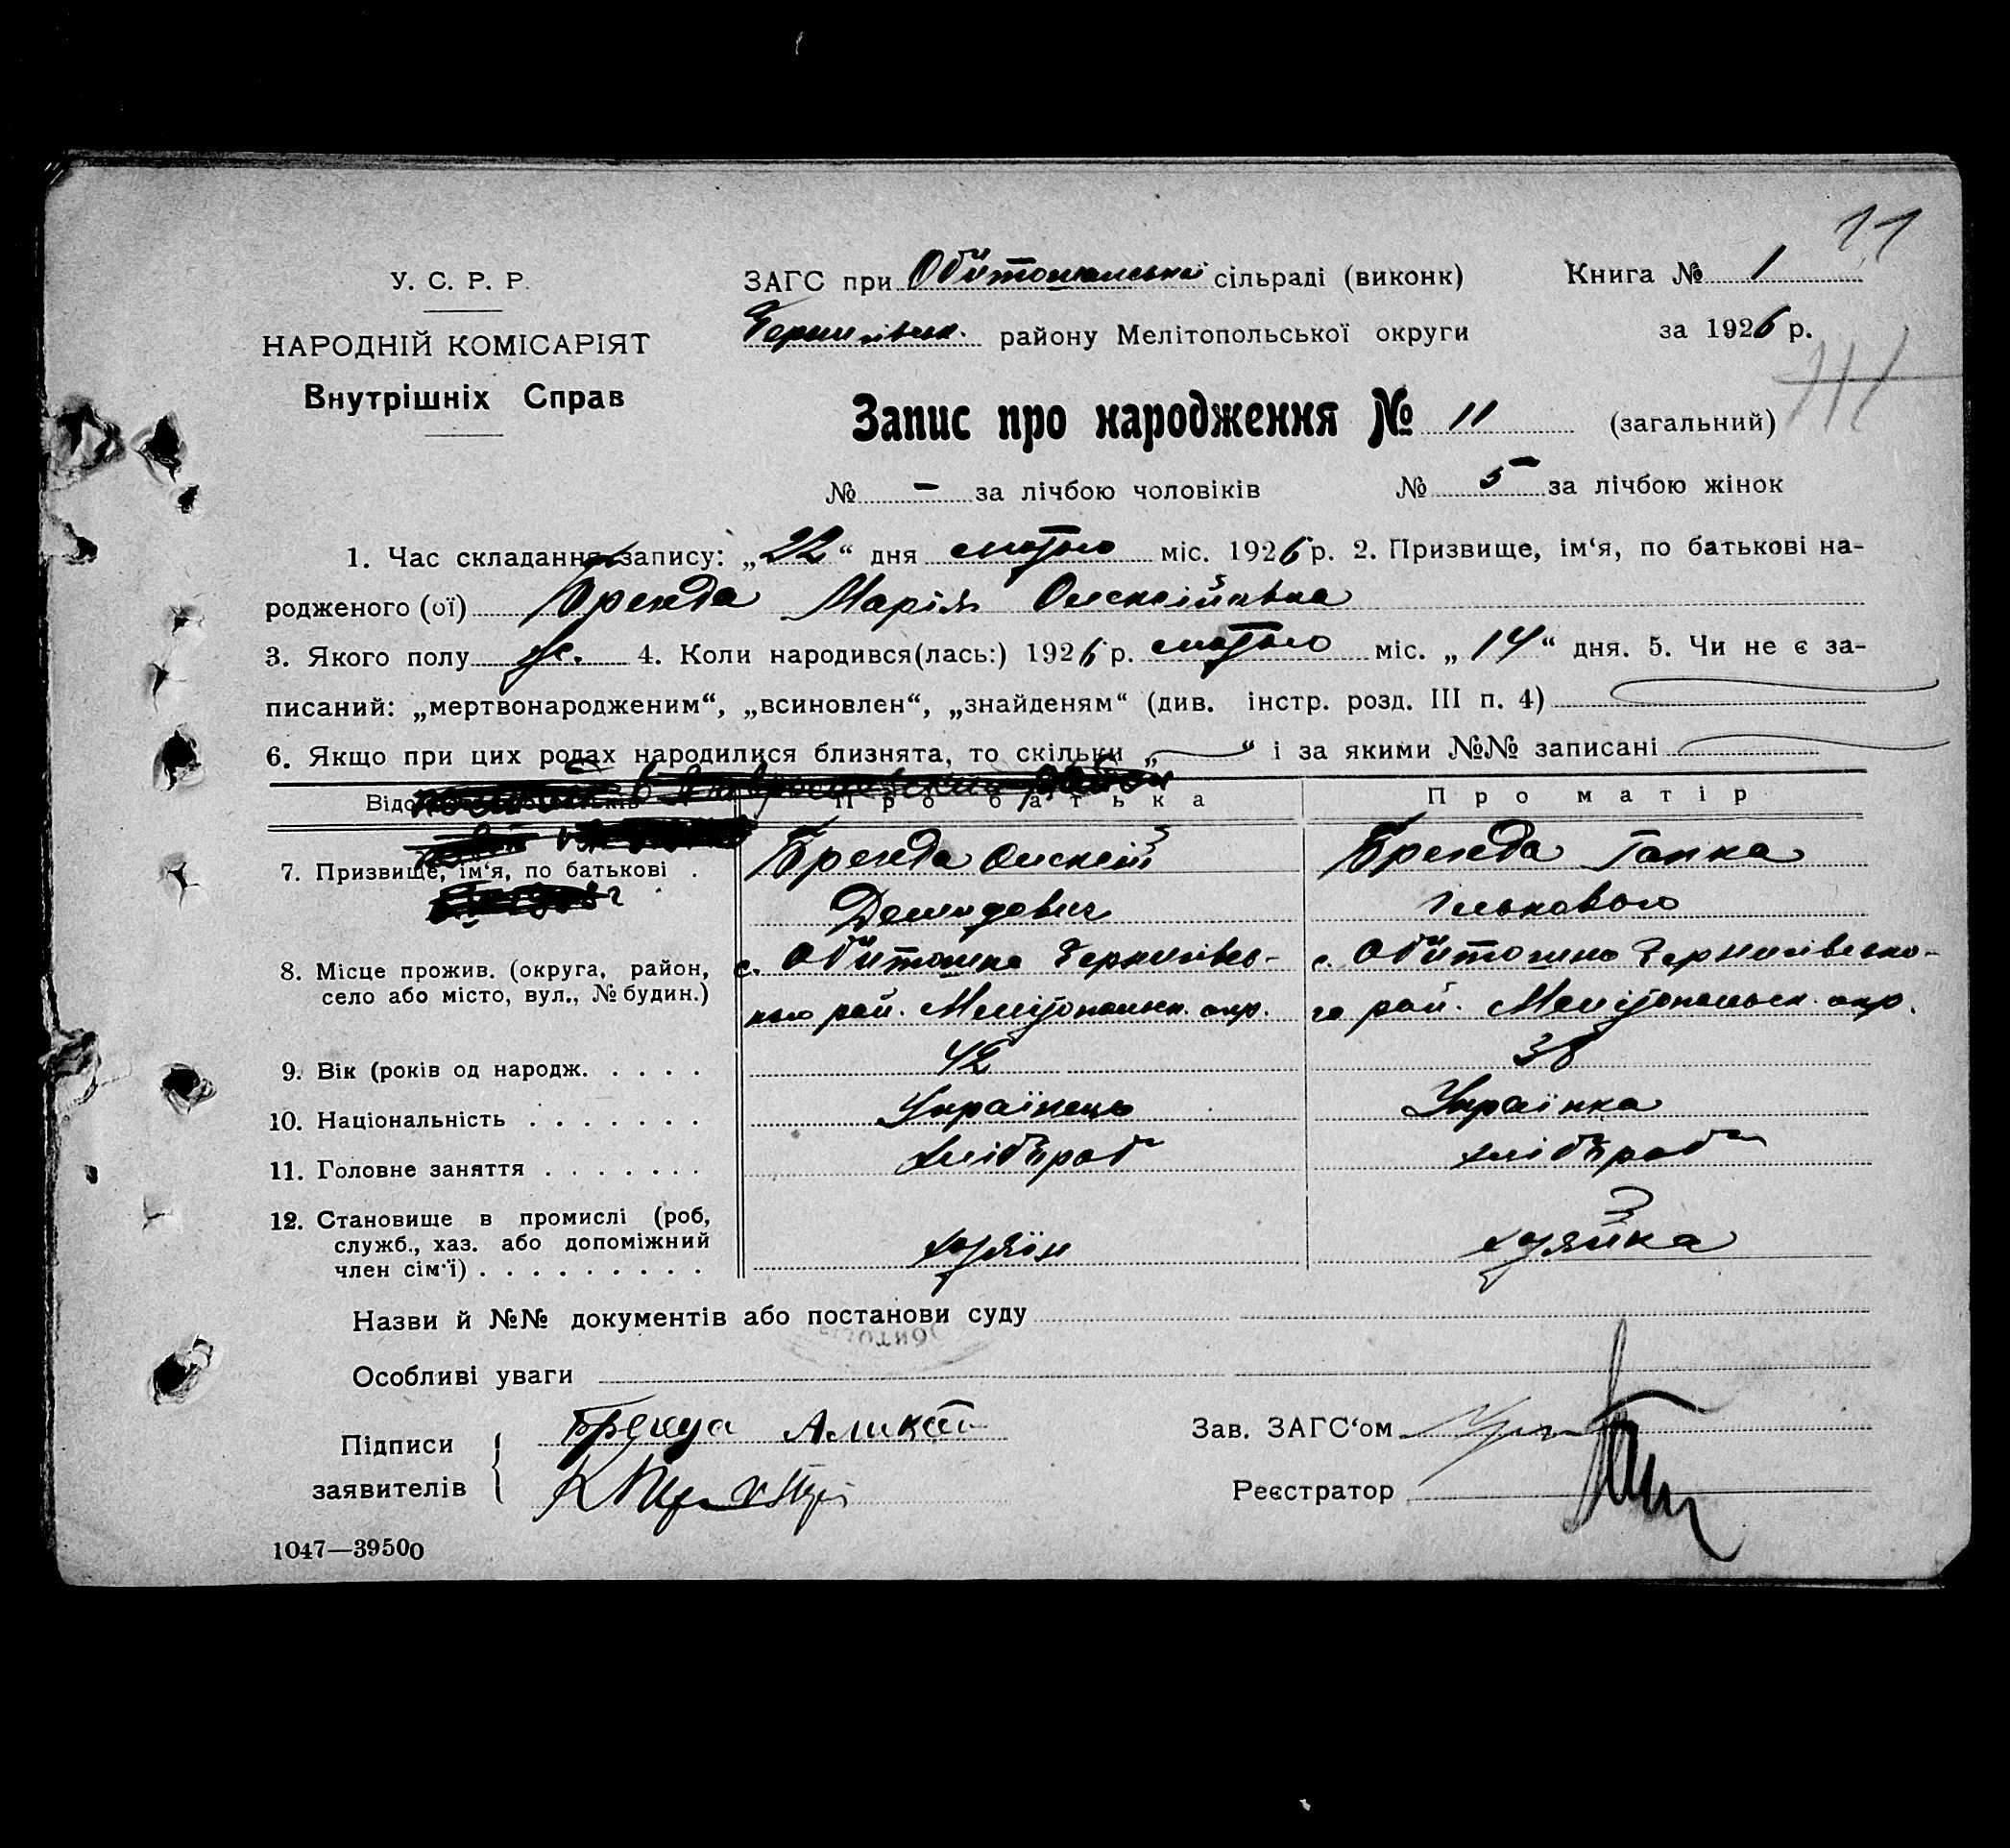 11
У. С. Р. Р.
НАРОДНІЙ КОМІСАРІЯТ
Внутрішніх Справ
ЗАГС при Обіточенській сільраді (виконк)
Книга № 1
Чернігівськ. району Мелітопольської округи
за 1926 р.
Запис про народження № 11 (загальний)
№ - за лічбою чоловіків № 5 за лічбою жінок
1. Час складання запису: „22“ дня лютого міс. 1926 р. 2. Призвище, ім‘я, по батькові на-
родженого (ої) Брежда Марія Олексіївна
3. Якого полу ж. 4. Коли народився(лась:) 1926 р. лютого міс. „14“ дня. 5. Чи не є за-
писаний: „мертвонародженим“, „всиновлен“, „знайденям“ (див. інстр. розд. III п. 4)
6. Якщо при цих родах народилися близнята, то скільки „ “ і за якими №№ записані
Про батька Про матір
7. Призвище, ім‘я, по батькові . Брежда Олексій Брежда Ганка
Демидович
8. Місце прожив. (округа, район, с. Обіточна Чернігівсь- с. Обіточна Чернігівсько-
село або місто, вул., № будин.) кого рай. Мелітопольськ. окр. го рай. Мелітопольськ. окр.
9. Вік (років од народж. . . . . 42 38
10. Національність . . . . . . . Українець Українка
11. Головне заняття . . . . . . . хлібороб хлібороб
12. Становище в промислі (роб,
служб., хаз. або допоміжний хазяїн хазяйка
член сім‘ї) . . . . . . . . .
Назви й №№ документів або постанови суду
Особливі уваги
Підписи Брежда
заявителів
Зав. ЗАГС‘ом
Реєстратор
1047—39500